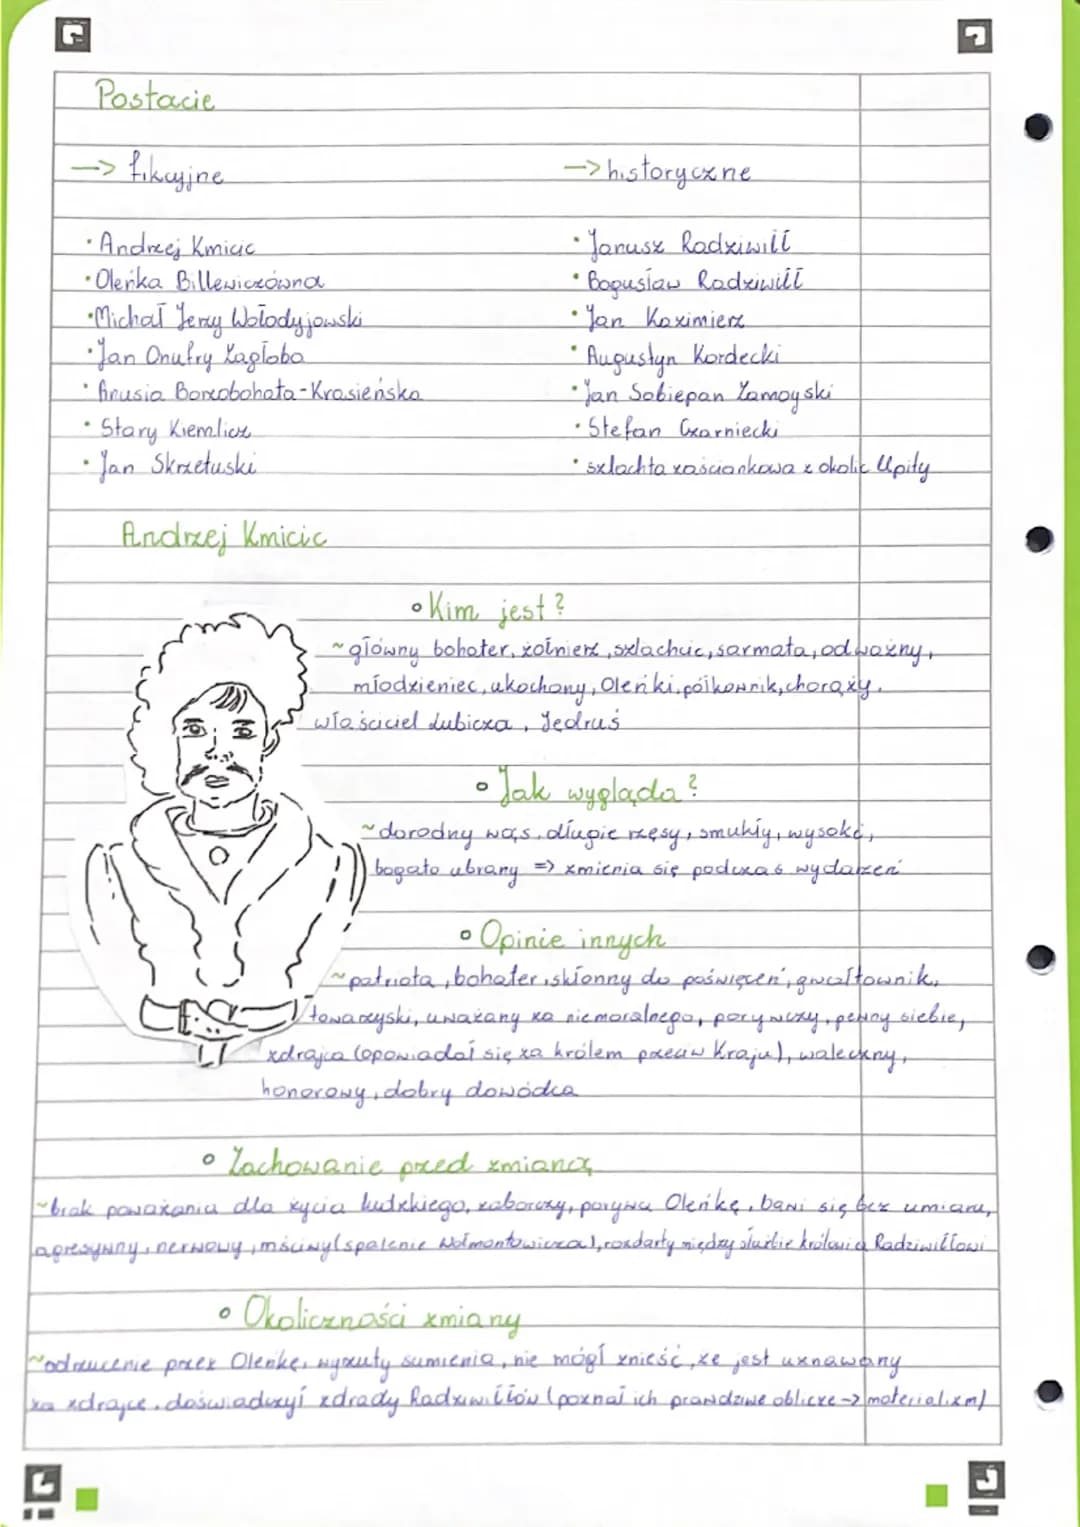 Postacie
-> fikcyjne
-> historyczne
• Andrzej Kmicic
• Oleńka Billewiczówna
• Michał Jerzy Wołodyjowski
• Jan Onufry Zagłoba
• Anusia Borzobohata-Krasieńska
• Stary Kiemlicz
• Jan Skrzetuski
• Janusz Radziwiłł
• Bogusław Radziwiłł
• Jan Kazimierz
• Augustyn Kordecki
• Jan Sobiepan Zamoyski
• Stefan Czarniecki
• szlachta zaściankowa z okolic Upity
Andrzej Kmicic
• Kim jest?
~ główny bohater, żołnierz, szlachcic, sarmata, odważny,
młodzieniec, ukochany, Oleńki, półkownik, chorąży,
właściciel Lubicza, Jędruś
• Jak wygląda?
~ dorodny wąs, długie rzęsy, smukły, wysoki,
bogato ubrany => zmienia się podczas wydarzeń
• Opinie innych
~ patriota, bohater, skłonny do poświęceń, gwałtownik,
towarzyski, uważany za niemoralnego, porywczy, pewny siebie,
zdrajca (opowiadał się za królem przeciw Kraju), waleczny,
honorowy, dobry dowódca
• Zachowanie przed zmianą
~ brak poważania dla życia ludzkiego, zaborczy, porywa Oleńkę, bawi się bez umiaru,
agresywny, nerwowy, mściwy (spalenie Wołmontowicza), rozdarty między służbie królowi a Radziwiłłowi
• Okoliczności zmiany
~ odrzucenie przez Oleńkę, wyrzuty sumienia, nie mógł znieść, że jest uznawany
za zdrajcę, doświadczył zdrady Radziwiłłów (poznał ich prawdziwe oblicze -> materializm)